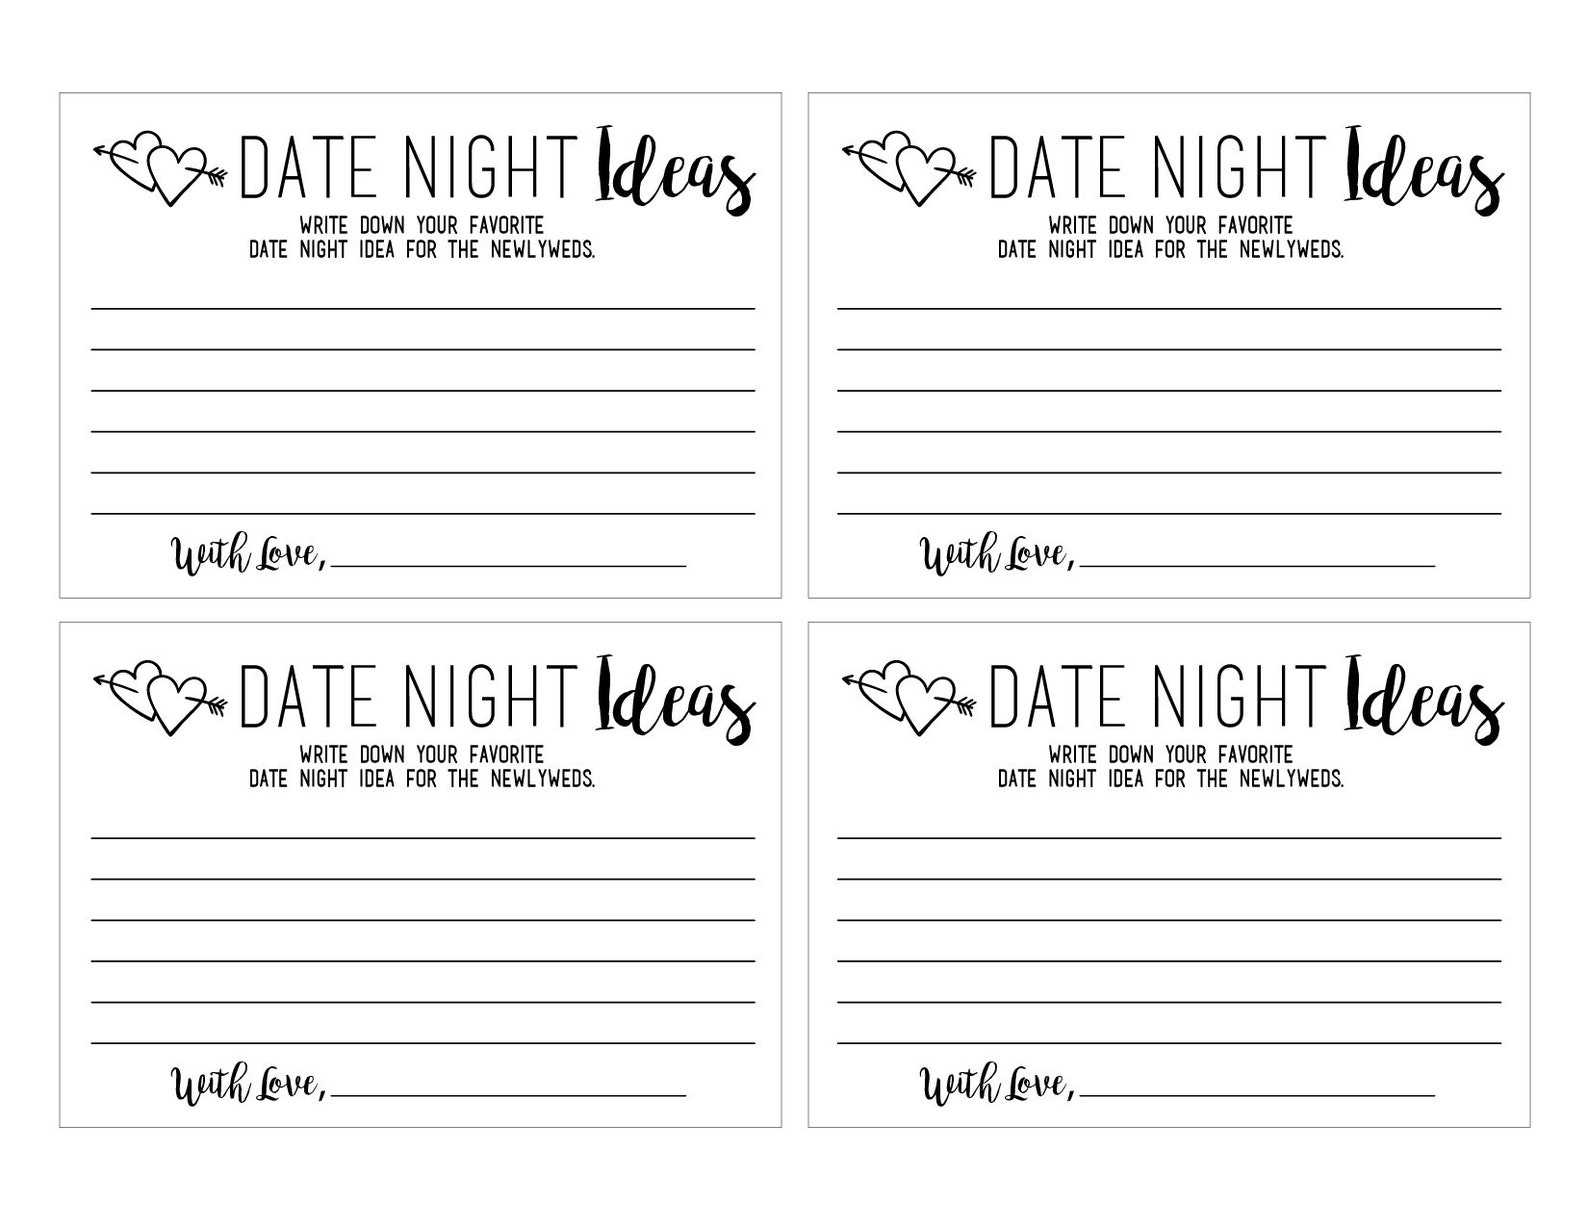 DATE NIGHT Ideas
WRITE DOWN YOUR FAVORITE
DATE NIGHT IDEA FOR THE NEWLYWEDS.
With Love,
DATE NIGHT Ideas
WRITE DOWN YOUR FAVORITE
DATE NIGHT IDEA FOR THE NEWLYWEDS.
With Love,
DATE NIGHT Ideas
WRITE DOWN YOUR FAVORITE
DATE NIGHT IDEA FOR THE NEWLYWEDS.
With Love,
DATE NIGHT Ideas
WRITE DOWN YOUR FAVORITE
DATE NIGHT IDEA FOR THE NEWLYWEDS.
With Love,